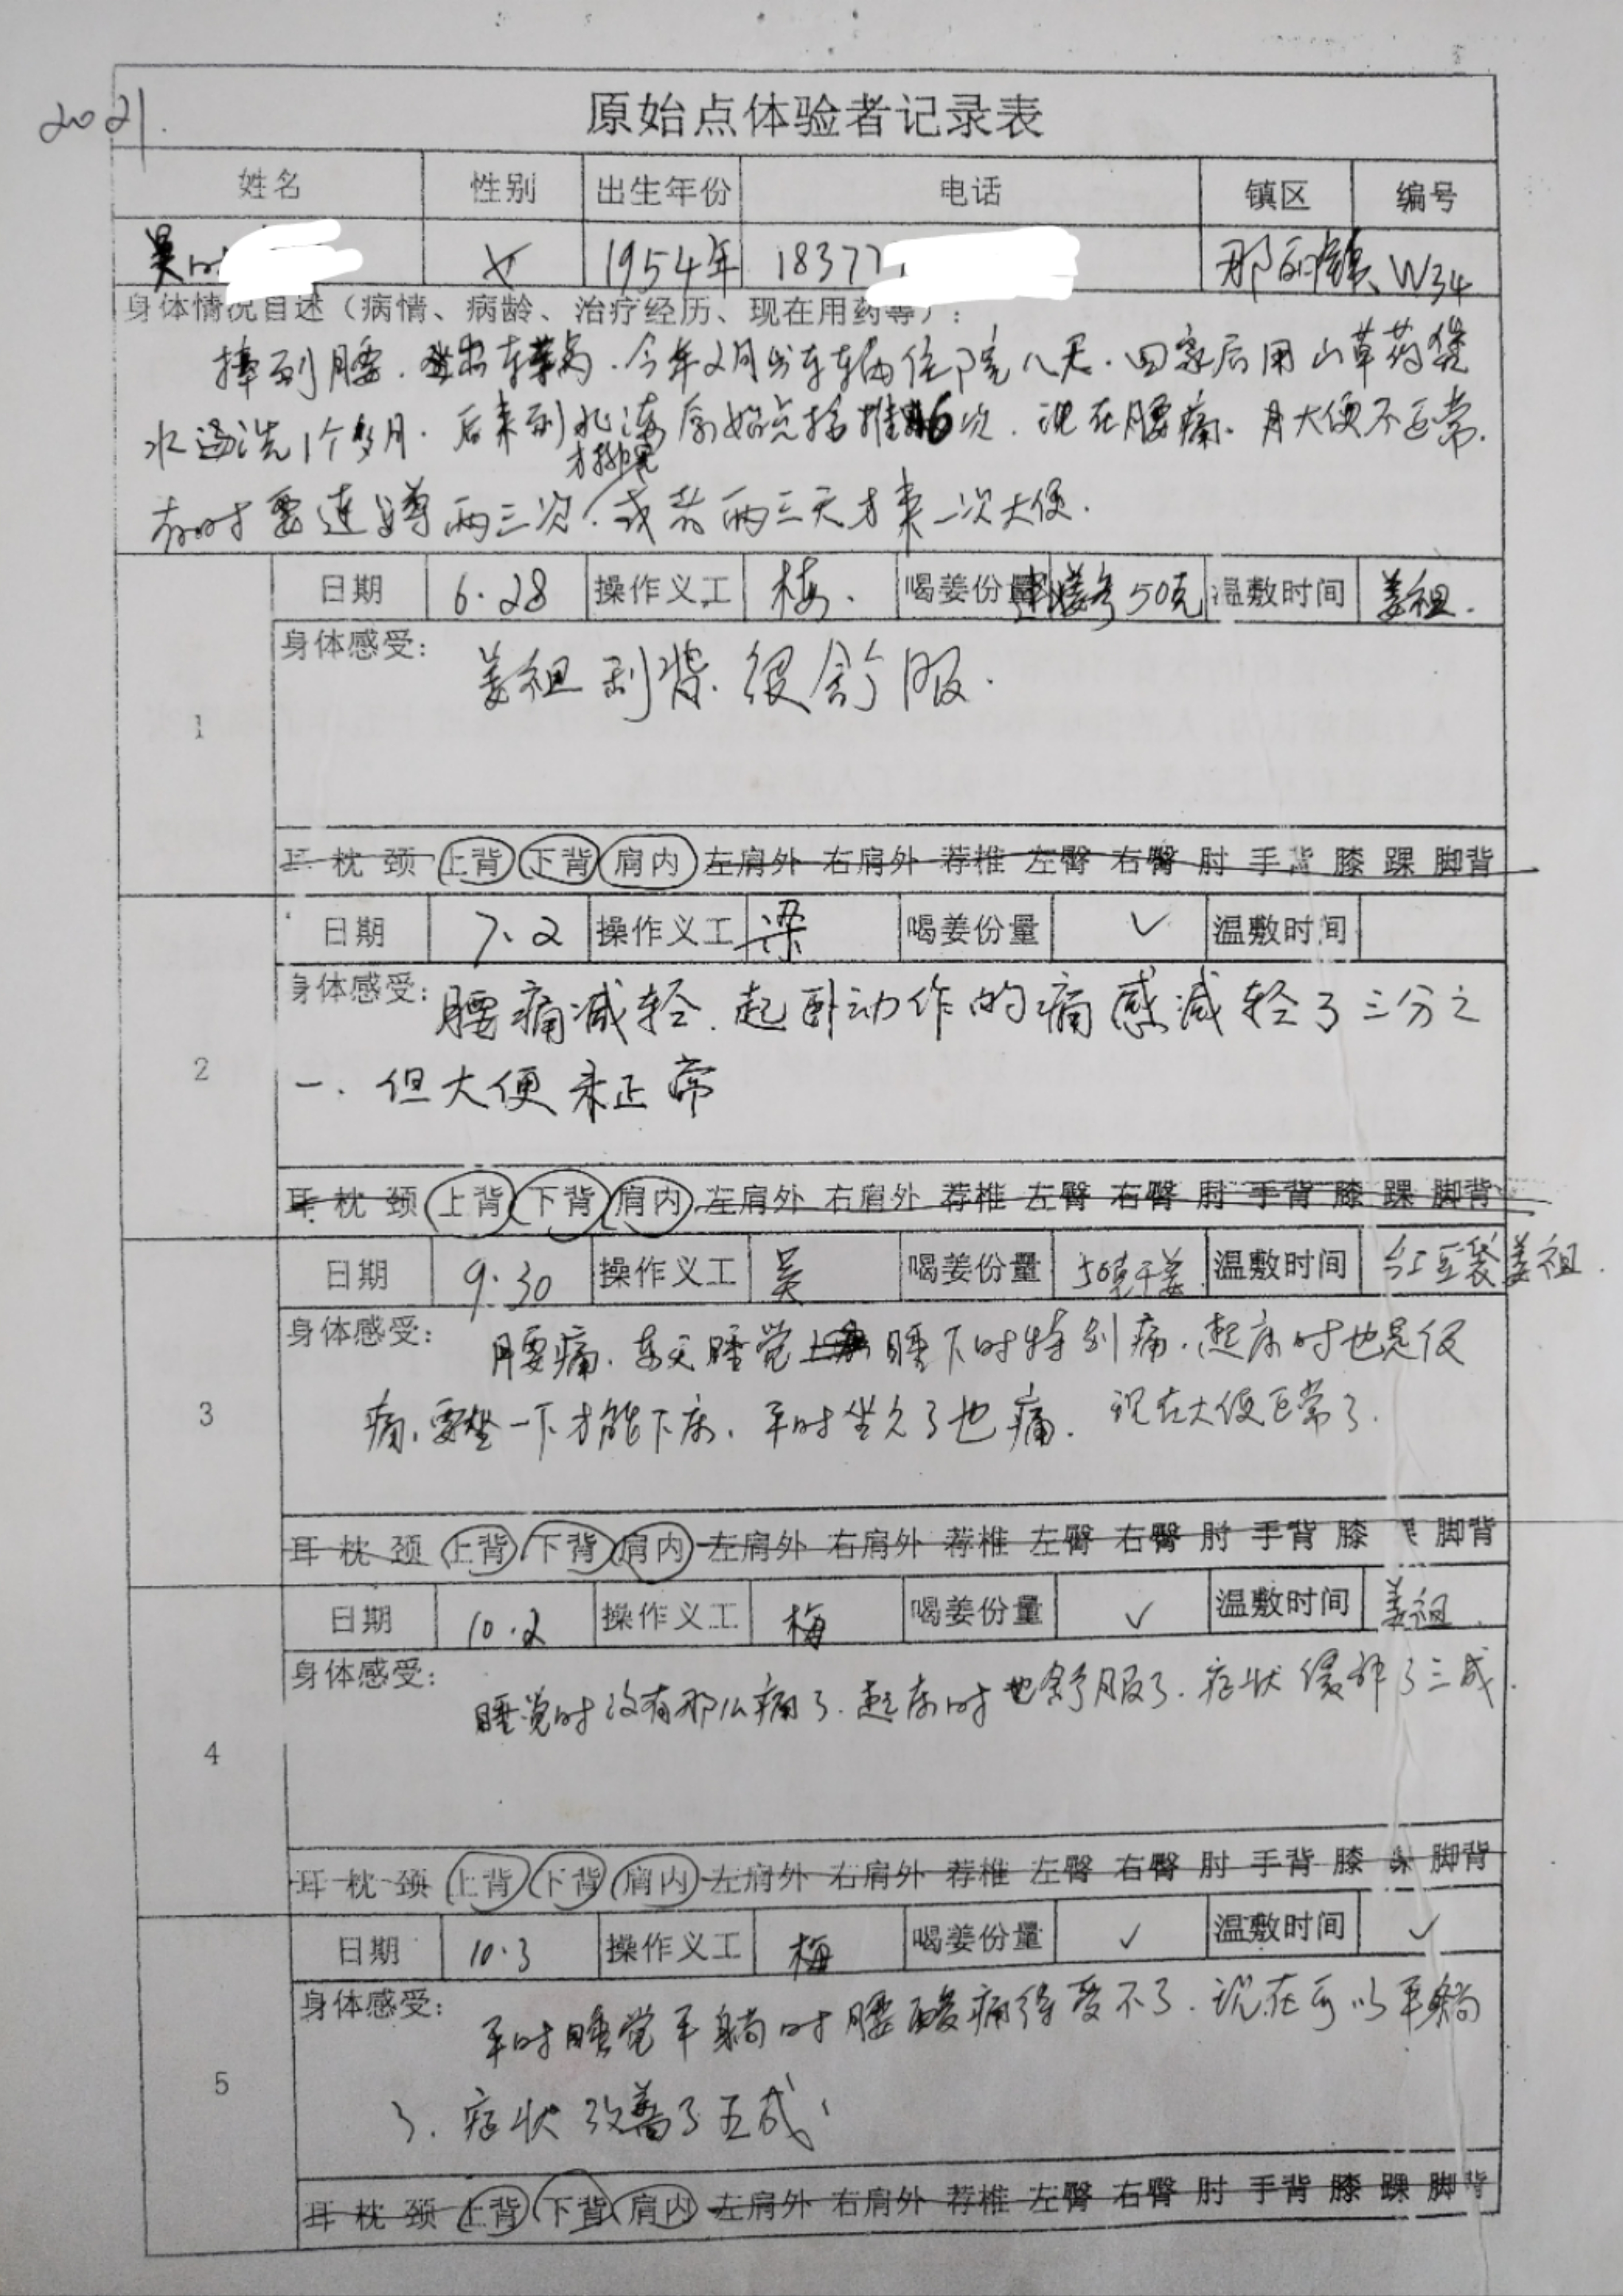 2021.
原始点体验者记录表
姓名 性别 出生年份 电话 镇区 编号
吴 女 1954年 18377 那丽镇 W34
身体情况自述（病情、病龄、治疗经历、现在用药等）：
摔到腰. 出车祸. 今年2月出车祸住院八天. 回家后用山草药煲
水汤洗1个多月. 后来到 原始点按推6次. 现在腰痛. 大便不正常.
才排完
有时要连蹲两三次. 或者两三天才来一次大便.
日期 6.28 操作义工 梅. 喝姜份量 50克 温敷时间 姜祖.
身体感受： 姜祖刮背. 很舒服.
1
耳 枕 颈 上背 下背 肩内 左肩外 右肩外 荐椎 左臀 右臀 肘 手背 膝 踝 脚背
日期 7.2 操作义工 梁 喝姜份量 ✓ 温敷时间
身体感受： 腰痛减轻. 起卧动作的痛感减轻了三分之
2
一. 但大便未正常
耳 枕 颈 上背 下背 肩内 左肩外 右肩外 荐椎 左臀 右臀 肘 手背 膝 踝 脚背
日期 9.30 操作义工 吴 喝姜份量 50克干姜 温敷时间 红豆袋姜祖.
身体感受： 腰痛. 睡觉 睡下时特别痛. 起床时也是很
3
痛. 要坐一下才能下床. 平时坐久了也痛. 现在大便正常了.
耳 枕 颈 上背 下背 肩内 左肩外 右肩外 荐椎 左臀 右臀 肘 手背 膝 脚背
日期 10.2 操作义工 梅 喝姜份量 ✓ 温敷时间 姜祖.
身体感受： 睡觉时没有那么痛了. 起床时也舒服了. 症状缓解了三成.
4
耳 枕 颈 上背 下背 肩内 左肩外 右肩外 荐椎 左臀 右臀 肘 手背 膝 脚背
日期 10.3 操作义工 梅 喝姜份量 ✓ 温敷时间 ✓
身体感受： 平时睡觉平躺时腰酸痛得受不了. 现在可以平躺
5
了. 症状改善了五成.
耳 枕 颈 上背 下背 肩内 左肩外 右肩外 荐椎 左臀 右臀 肘 手背 膝 踝 脚背